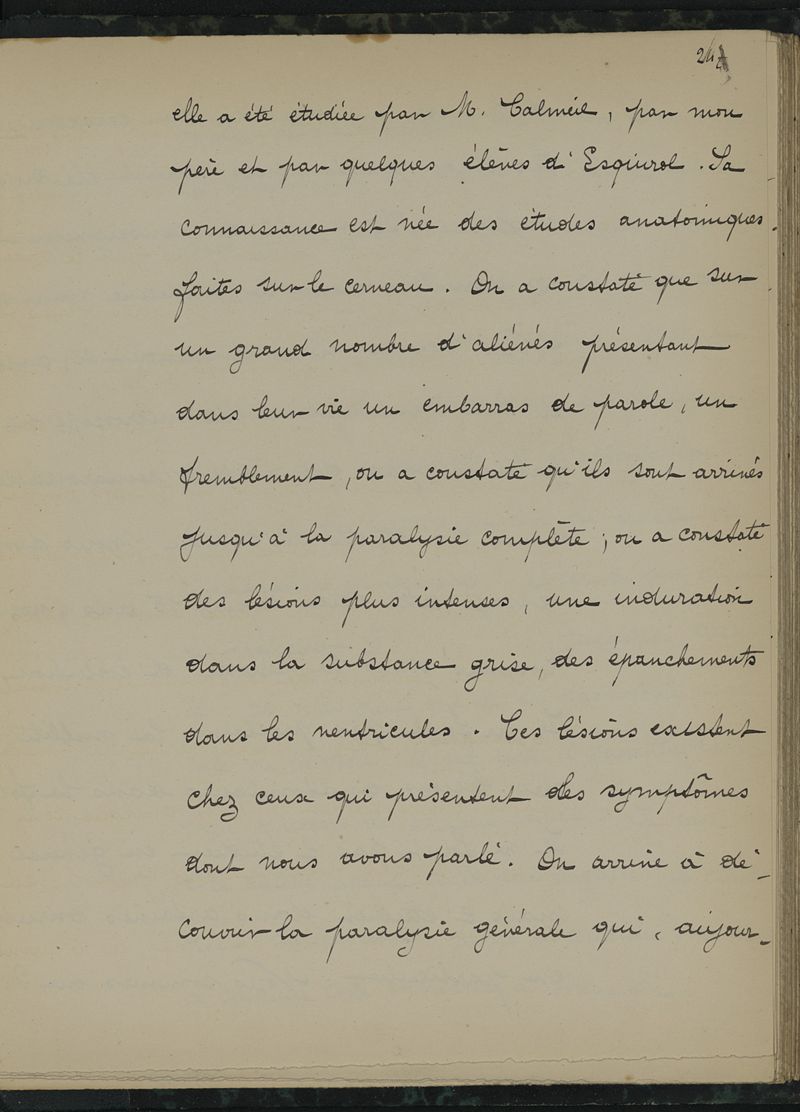 elle a été étudiée par M. Calmeil, par mon
père et par quelques élèves d'Esquirol. Sa
connaissance est née des études anatomiques
faites sur le cerveau. On a constaté que sur
un grand nombre d'aliénés présentant
dans leur vie un embarras de parole, un
tremblement, on a constaté qu'ils sont arrivés
jusqu'à la paralysie complète ; on a constaté
des lésions plus intenses, une induration
dans la substance grise, des épanchements
dans les ventricules. Ces lésions existent
chez ceux qui présentent des symptômes
dont nous avons parlé. On arrive à dé-
couvrir la paralysie générale qui, aujour-